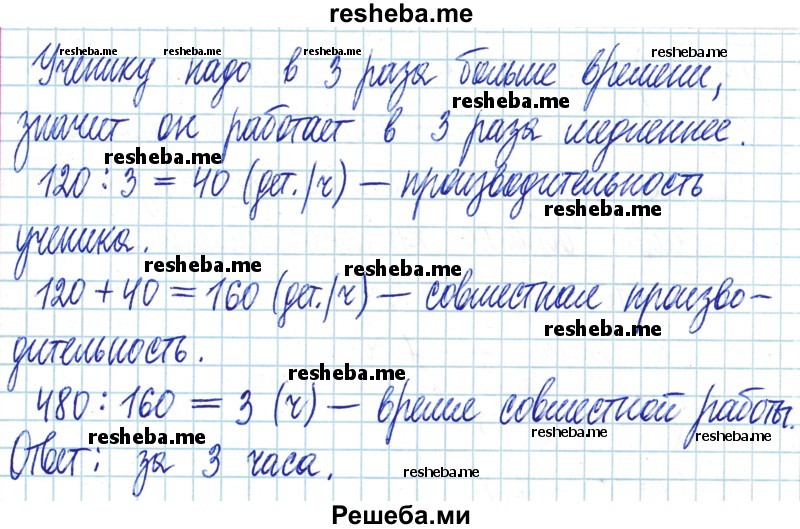 resheba.me
Ученику надо в 3 раза больше времени,
resheba.me resheba.me resheba.me resheba.me
resheba.me
значит он работает в 3 раза медленнее.
resheba.me
120 : 3 = 40 (дет./ч) — производительность
resheba.me
ученика.
resheba.me resheba.me
120 + 40 = 160 (дет./ч) — совместная произво-
resheba.me
дительность.
resheba.me
480 : 160 = 3 (ч) — время совместной работы.
resheba.me resheba.me resheba.me
Ответ: за 3 часа.
resheba.me
Решеба.ми